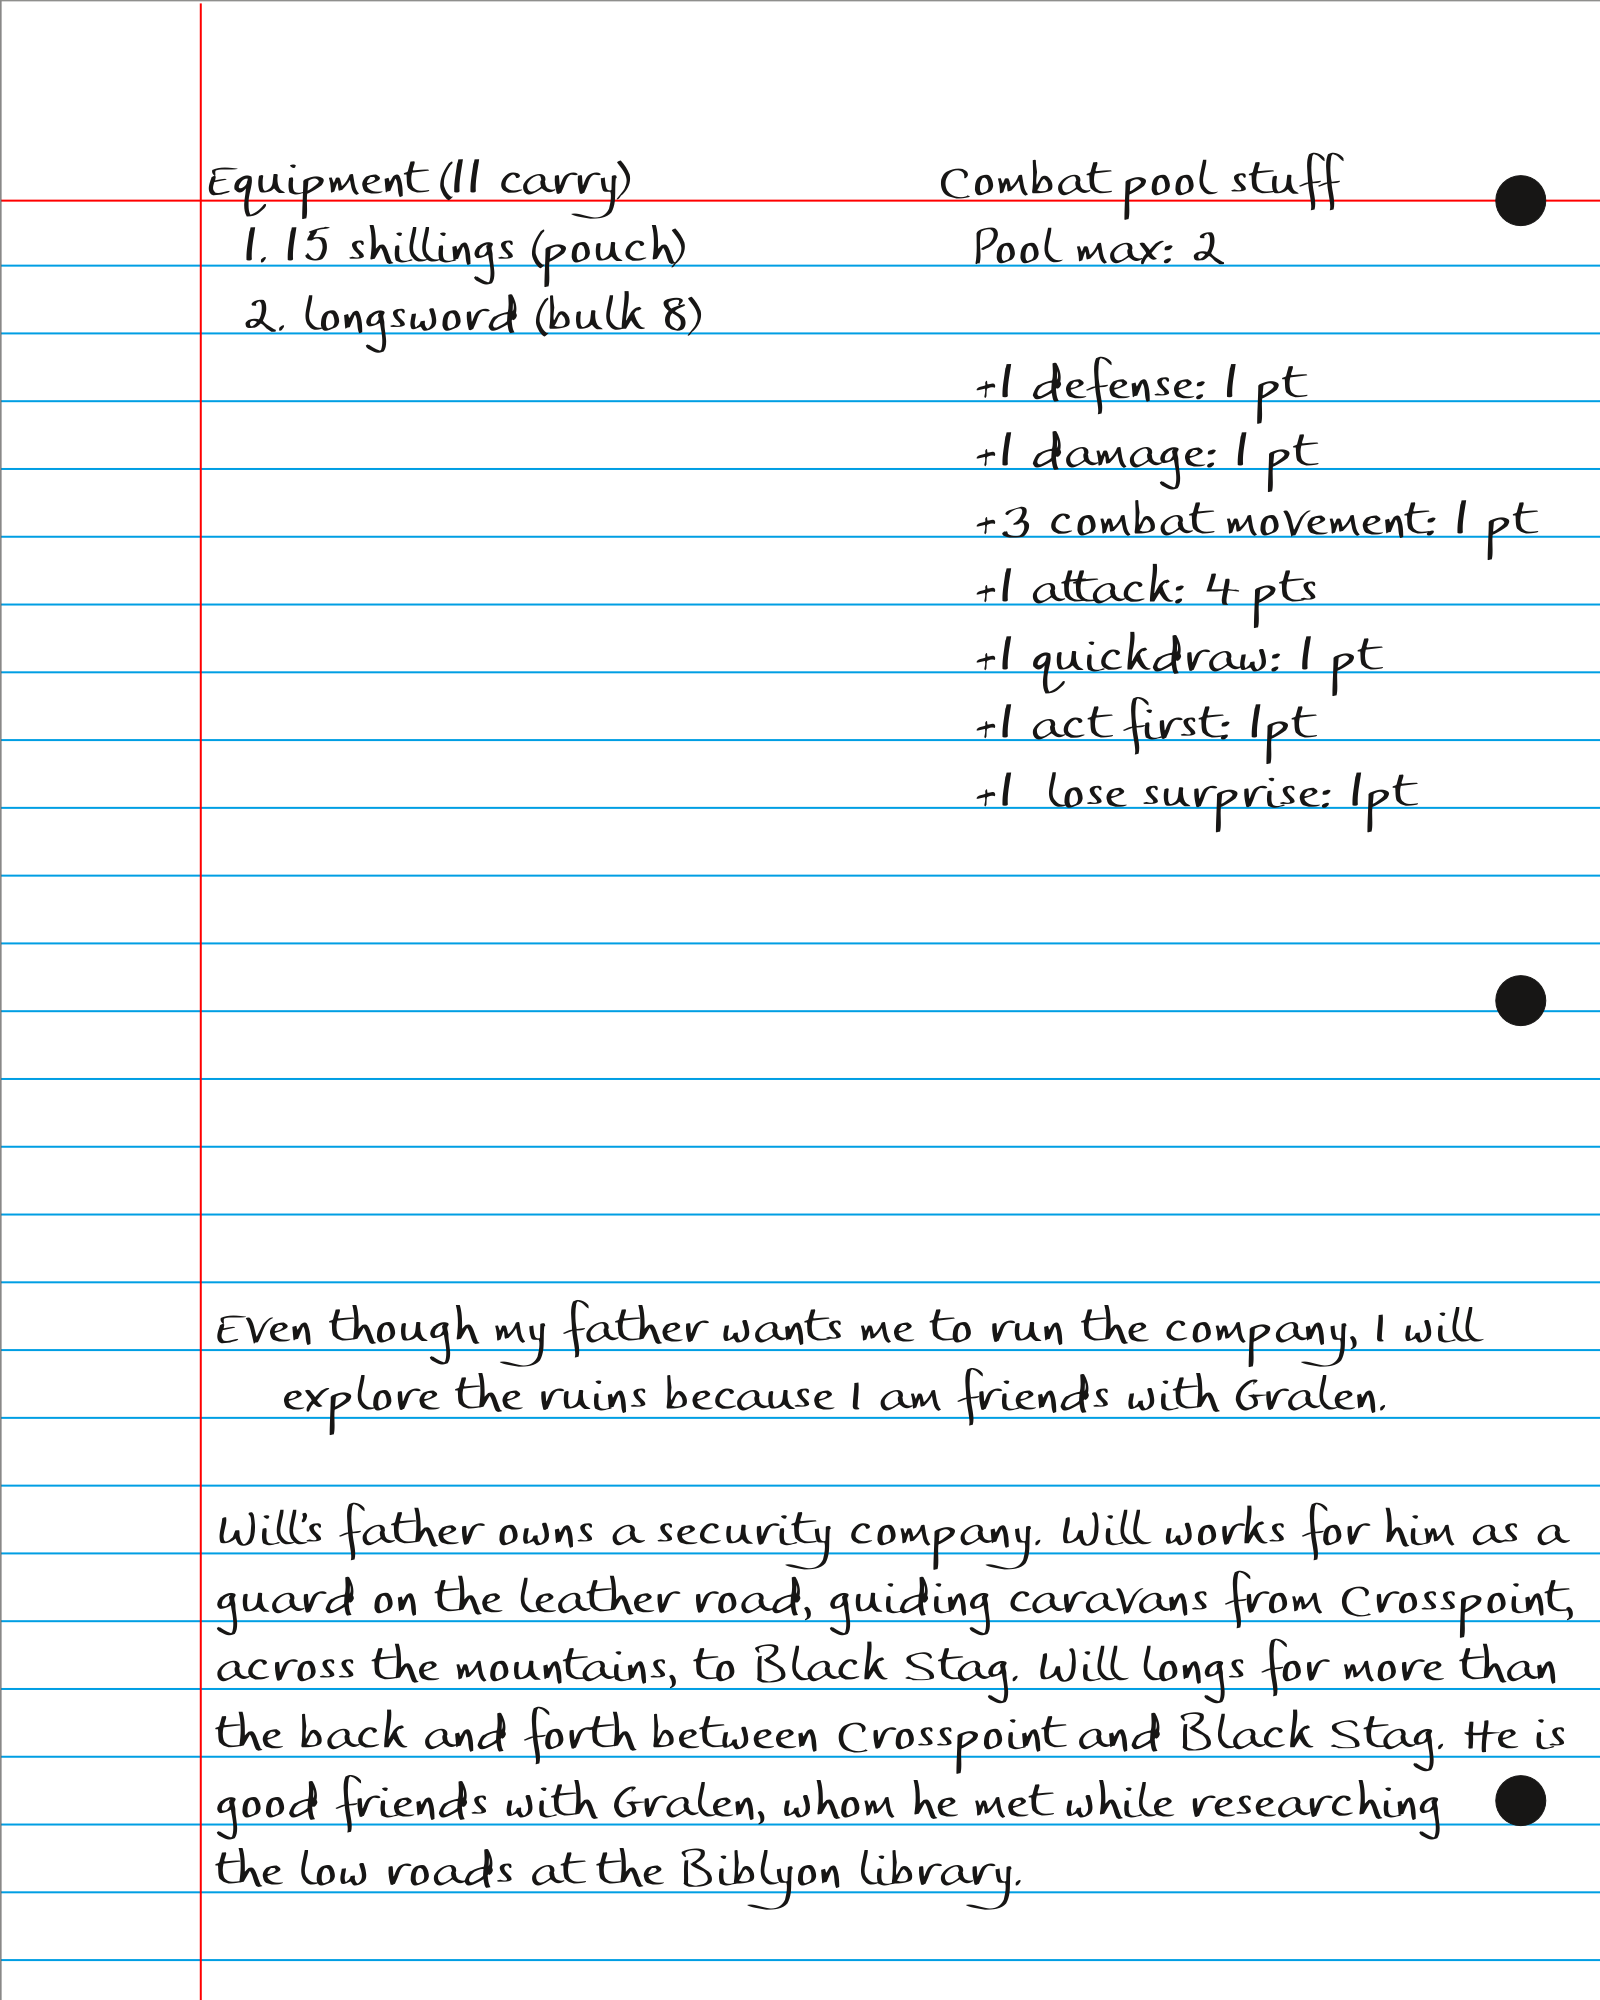 Equipment (11 carry)
1. 15 shillings (pouch)
2. longsword (bulk 8)
Combat pool stuff
Pool max: 2
+1 defense: 1 pt
+1 damage: 1 pt
+3 combat movement: 1 pt
+1 attack: 4 pts
+1 quickdraw: 1 pt
+1 act first: 1pt
+1 lose surprise: 1pt
Even though my father wants me to run the company, I will
explore the ruins because I am friends with Gralen.
Will's father owns a security company. Will works for him as a
guard on the leather road, guiding caravans from Crosspoint,
across the mountains, to Black Stag. Will longs for more than
the back and forth between Crosspoint and Black Stag. He is
good friends with Gralen, whom he met while researching
the low roads at the Biblyon library.